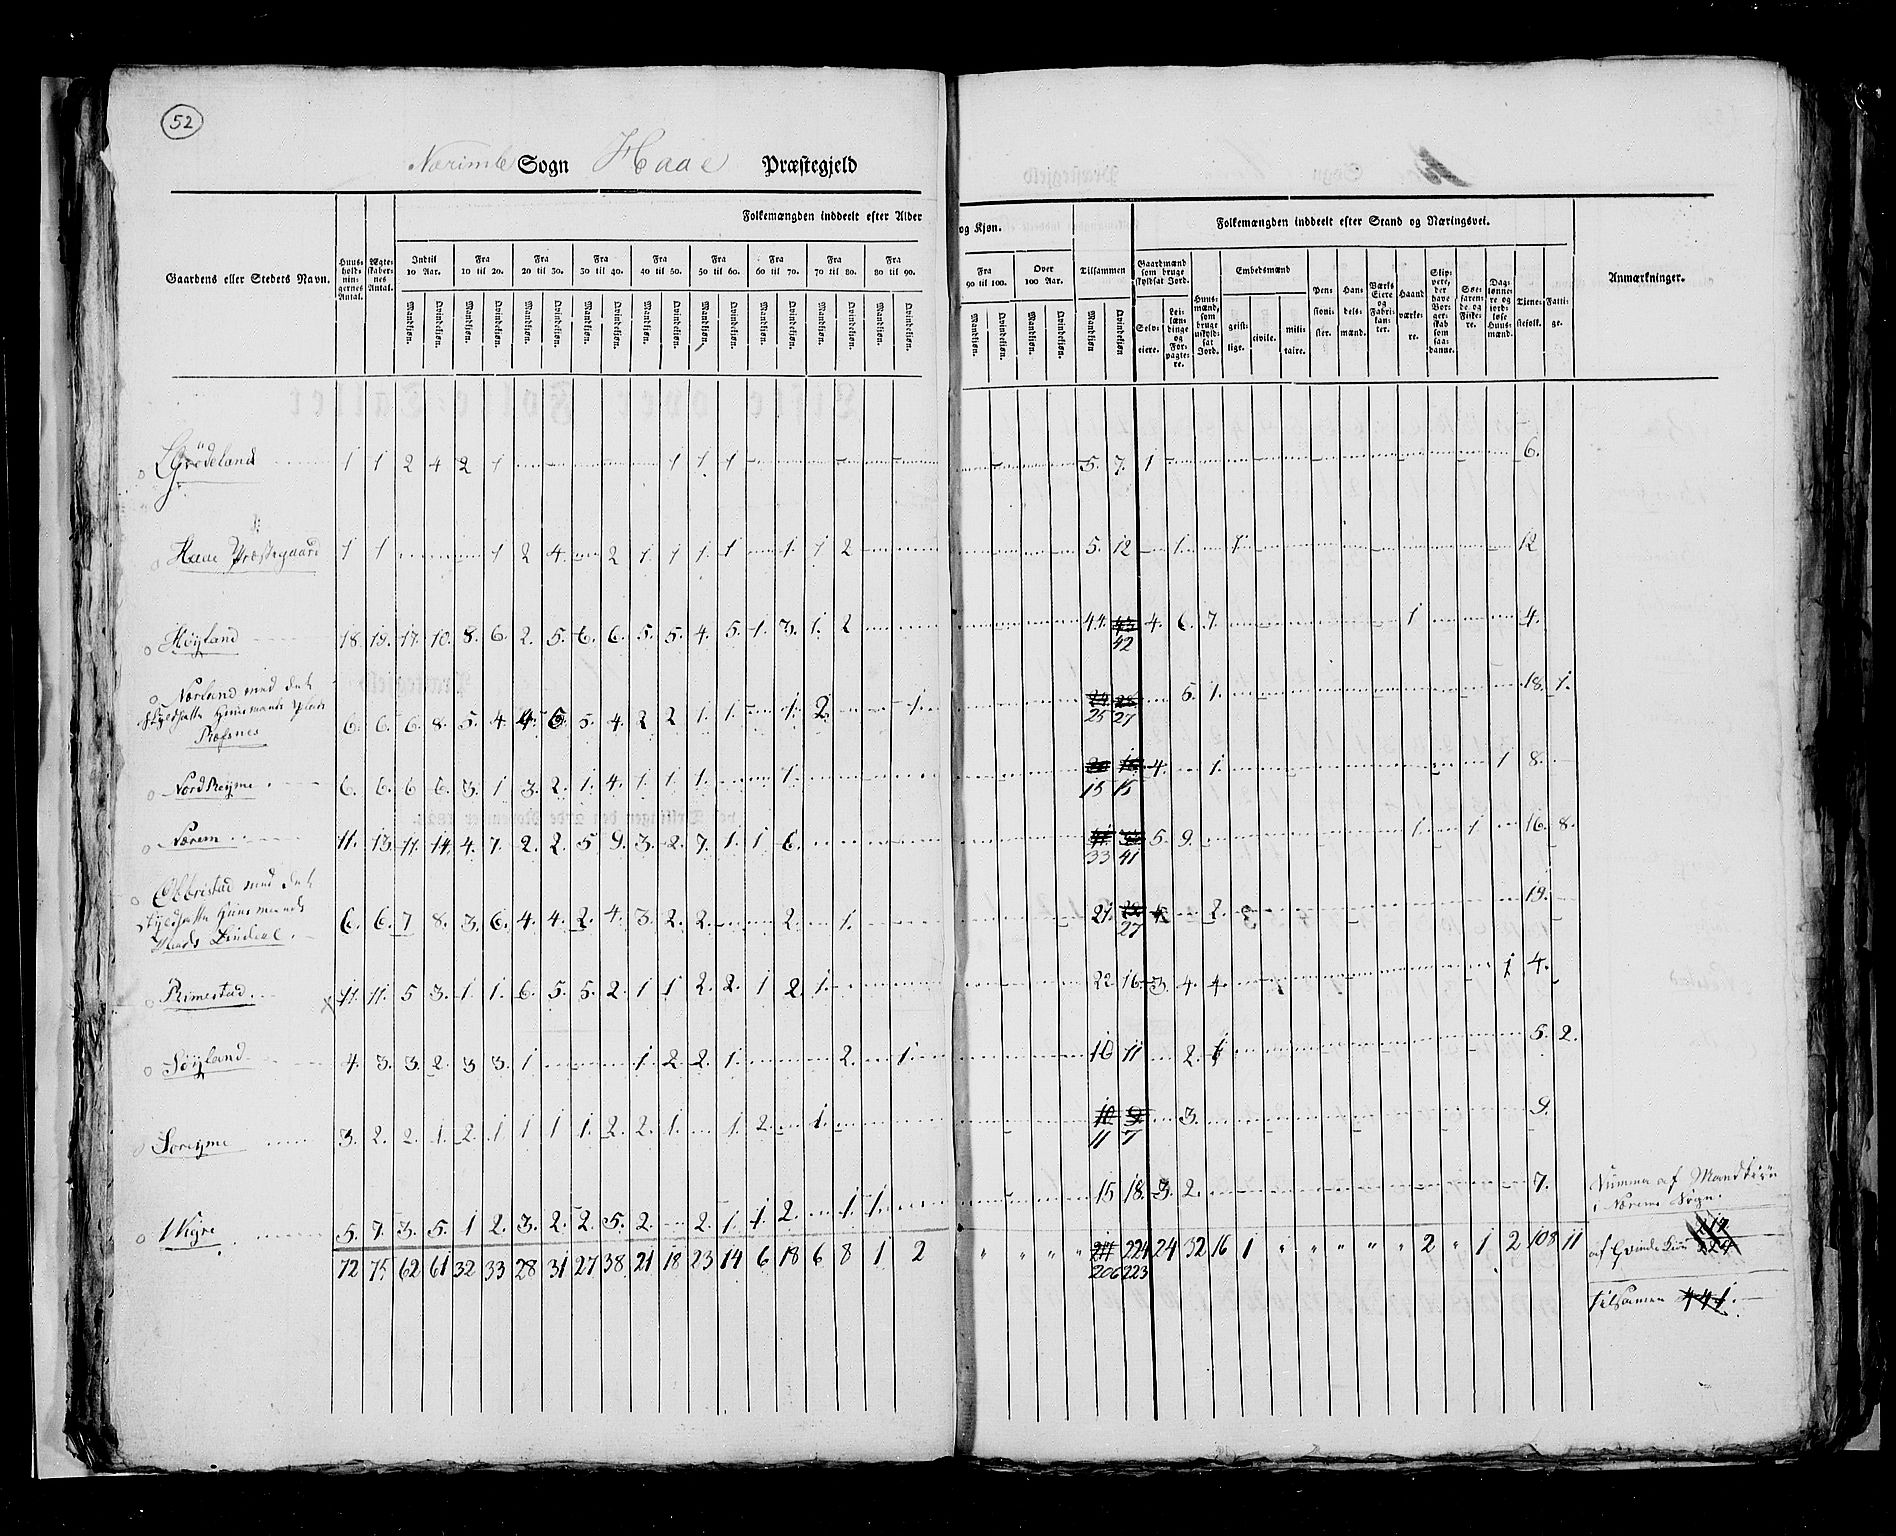 52
Nærimb Sogn Haae Præstegjeld
Gaardens eller Steders Navn. Huusholdningernes Antal. Ægteskabernes Antal. Folkemængden inddeelt efter Alder og Kjøn. Folkemængden inddeelt efter Stand og Næringsvei. Anmærkninger.
Indtil 10 Aar. Fra 10 til 20. Fra 20 til 30. Fra 30 til 40. Fra 40 til 50. Fra 50 til 60. Fra 60 til 70. Fra 70 til 80. Fra 80 til 90. Fra 90 til 100. Over 100 Aar. Tilsammen
Gaardmænd som bruge skyldsat Jord. Huusmænd, som bruge uskyldsat Jord. Embedsmænd Pensionister. Handelsmænd. Værks Eiere og Fabrikanter. Haandværkere. Skippere, der have Borgerskab som saadanne. Søefarende og Fiskere. Daglønnere og jordløse Huusmænd. Tjenestefolk. Fattige.
Mandkiøn. Qvindekiøn. Mandkiøn. Qvindekiøn. Mandkiøn. Qvindekiøn. Mandkiøn. Qvindekiøn. Mandkiøn. Qvindekiøn. Mandkiøn. Qvindekiøn. Mandkiøn. Qvindekiøn. Mandkiøn. Qvindekiøn. Mandkiøn. Qvindekiøn. Mandkiøn. Qvindekiøn. Mandkiøn. Qvindekiøn. Mandkiøn Qvindekiøn Selveiere. Leilændinge og Forpagtere. geistlige. civile. militaire.
Grödeland 1 1 2 4 2 1 1 1 1 5. 7. 1 6.
Haae Præstegaard 1 1 1 2 4. 2 1. 1 1. 1 1. 1 2 5. 12 1. 1. 12
Höÿland 18. 19. 17. 10. 8. 6. 2. 5. 6. 6. 5. 5. 4. 5. 1. 3. 1. 2 44. 43 4. 6. 7. 1 4.
42
Nærland med det
Skyldsatte Huusmands Plads
Ræfsnes 6. 6. 6. 8. 5. 4. 4. 6. 5. 4. 2 2 1. 1. 1. 2. 1. 5. 1. 18. 1.
25 27
Nord Reÿme 6. 6. 6 6. 3. 1 3. 2. 1. 4. 1. 1. 1. 1. 4. 1. 1 8.
15 15
Nærem 11. 13. 11. 14. 4. 7. 2. 2. 5 9. 3. 2. 7. 1. 1 6. 5. 9. 1. 1 16. 8.
33 41
Obrestad med det
Skyldsatte Huusmands
Plads 6. 6. 7 8. 3. 6. 4. 4. 2. 4. 3. 2. 2. 2. 1. 21. 28 2. 19.
27
Rimestad. 11. 11. 5 3. 1 1. 6. 5. 5. 2. 1 1 2. 2. 1 2. 1. 22. 16. 3. 4. 4. 1 4.
Söÿland 4. 3. 3. 2. 3 3. 1 1. 2. 2. 1. 2. 1. 10 11 2. 1 5. 2.
Soreÿme 3. 2. 2. 1. 2. 1 1 1 1. 2. 2. 1. 1. 2. 1. 10 9 3. 9.
11 7
Wigre 5. 7. 3. 5. 1 2. 3. 2. 2. 5. 2. 2. 1. 1. 2. 1. 1. 15 18. 3. 2. 7.
72 75 62 61 32 33 28 31 27 38 21 18 23 14 6 18 6 8 1 2 " " " " 217 224 24 32 16 1 " " " " " " 2 " 1 2 108 11
206 223
Summa af Mandkiön
i Nærems Sogn.
af Qvinde Kiön 224
tilsamen 441.